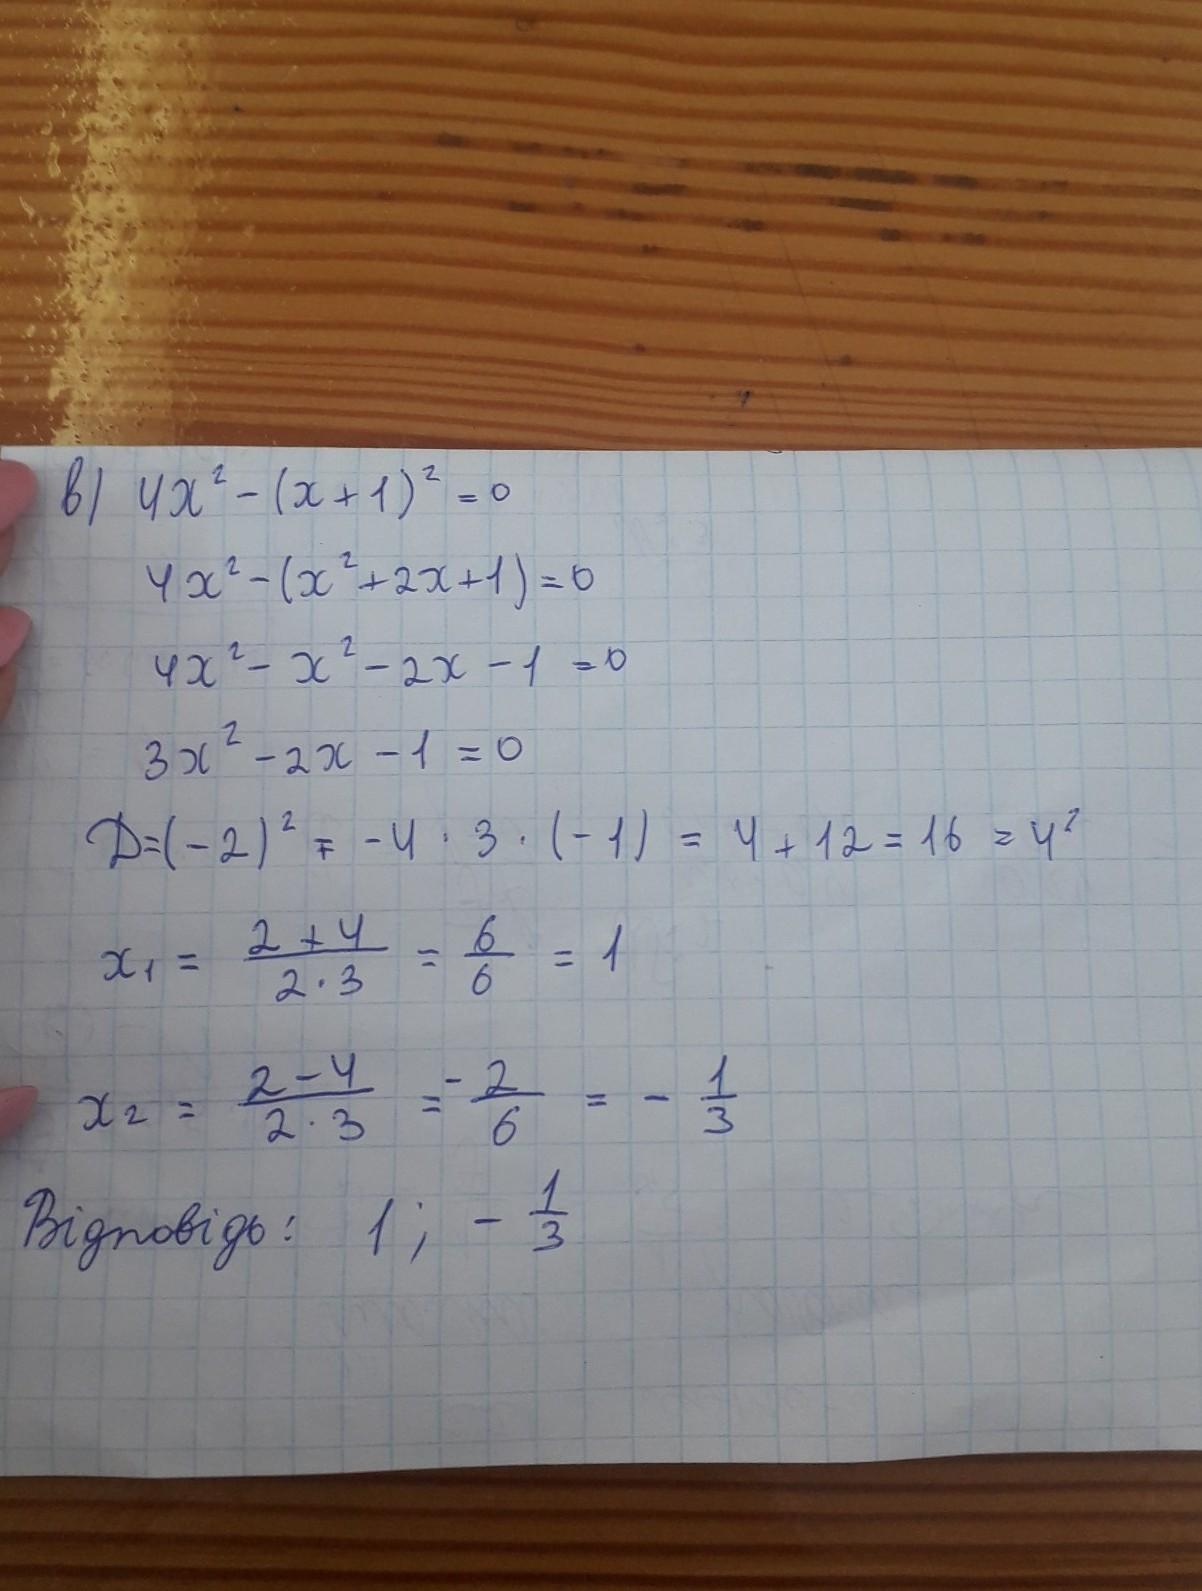 в) 4x² - (x + 1)² = 0
4x² - (x² + 2x + 1) = 0
4x² - x² - 2x - 1 = 0
3x² - 2x - 1 = 0
D = (-2)² = -4 · 3 · (-1) = 4 + 12 = 16 = 4²
x₁ = (2 + 4)/(2 · 3) = 6/6 = 1
x₂ = (2 - 4)/(2 · 3) = -2/6 = - 1/3
Відповідь: 1; - 1/3